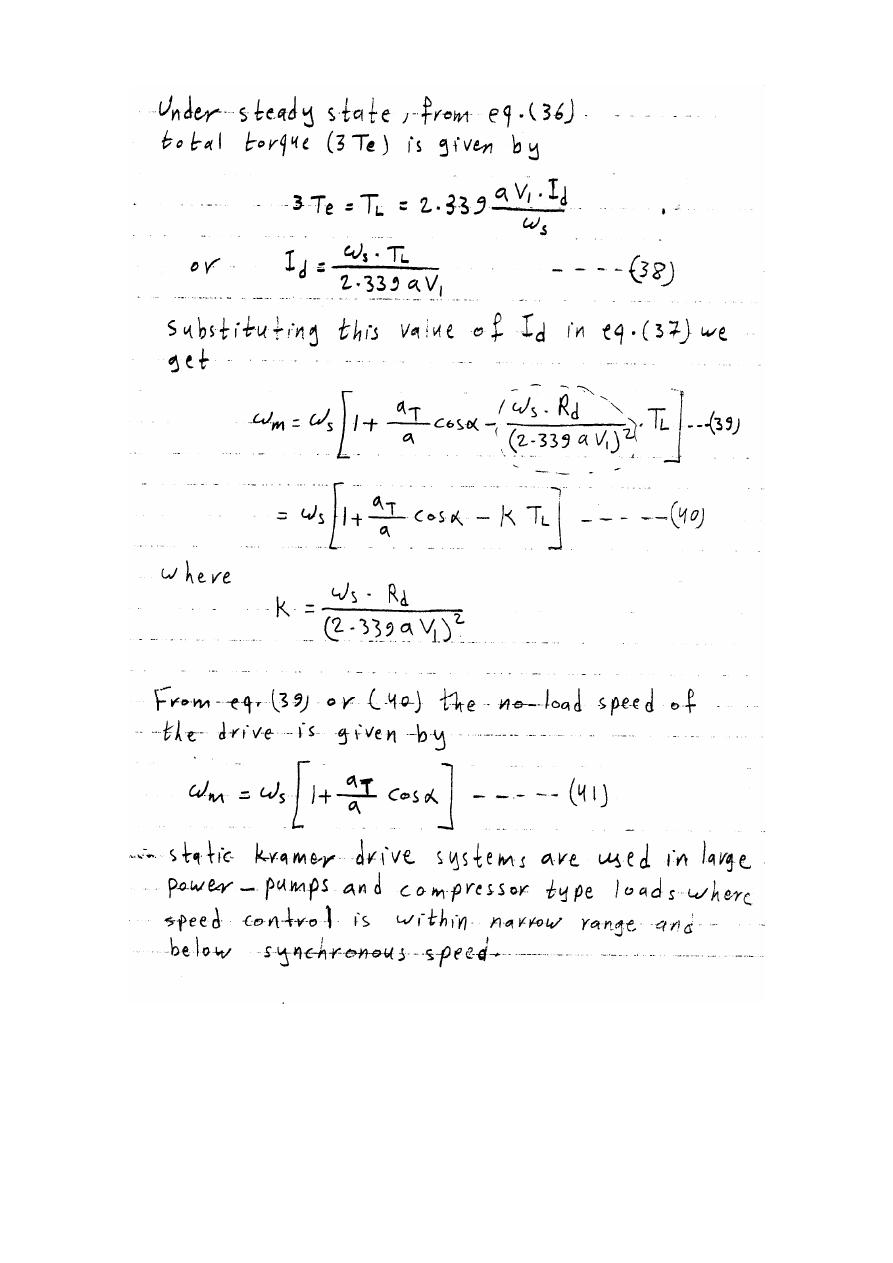 Under steady state, from eq.(36)
total torque (3 Te) is given by
3 Te = TL = 2.339 a V1 . Id / ωs
or Id = ωs . TL / 2.339 a V1 ----(38)
Substituting this value of Id in eq.(37) we
get
ωm = ωs [ 1 + aT/a cosα - ( ωs . Rd / (2.339 a V1)² ) . TL ] ---(39)
= ωs [ 1 + aT/a cosα - K TL ] ------(40)
where
K = ωs . Rd / (2.339 a V1)²
From eq. (39) or (40) the no-load speed of
the drive is given by
ωm = ωs [ 1 + aT/a cosα ] ------ (41)
static kramer drive systems are used in large
power - pumps and compressor type loads where
speed control is within narrow range and
below synchronous speed.